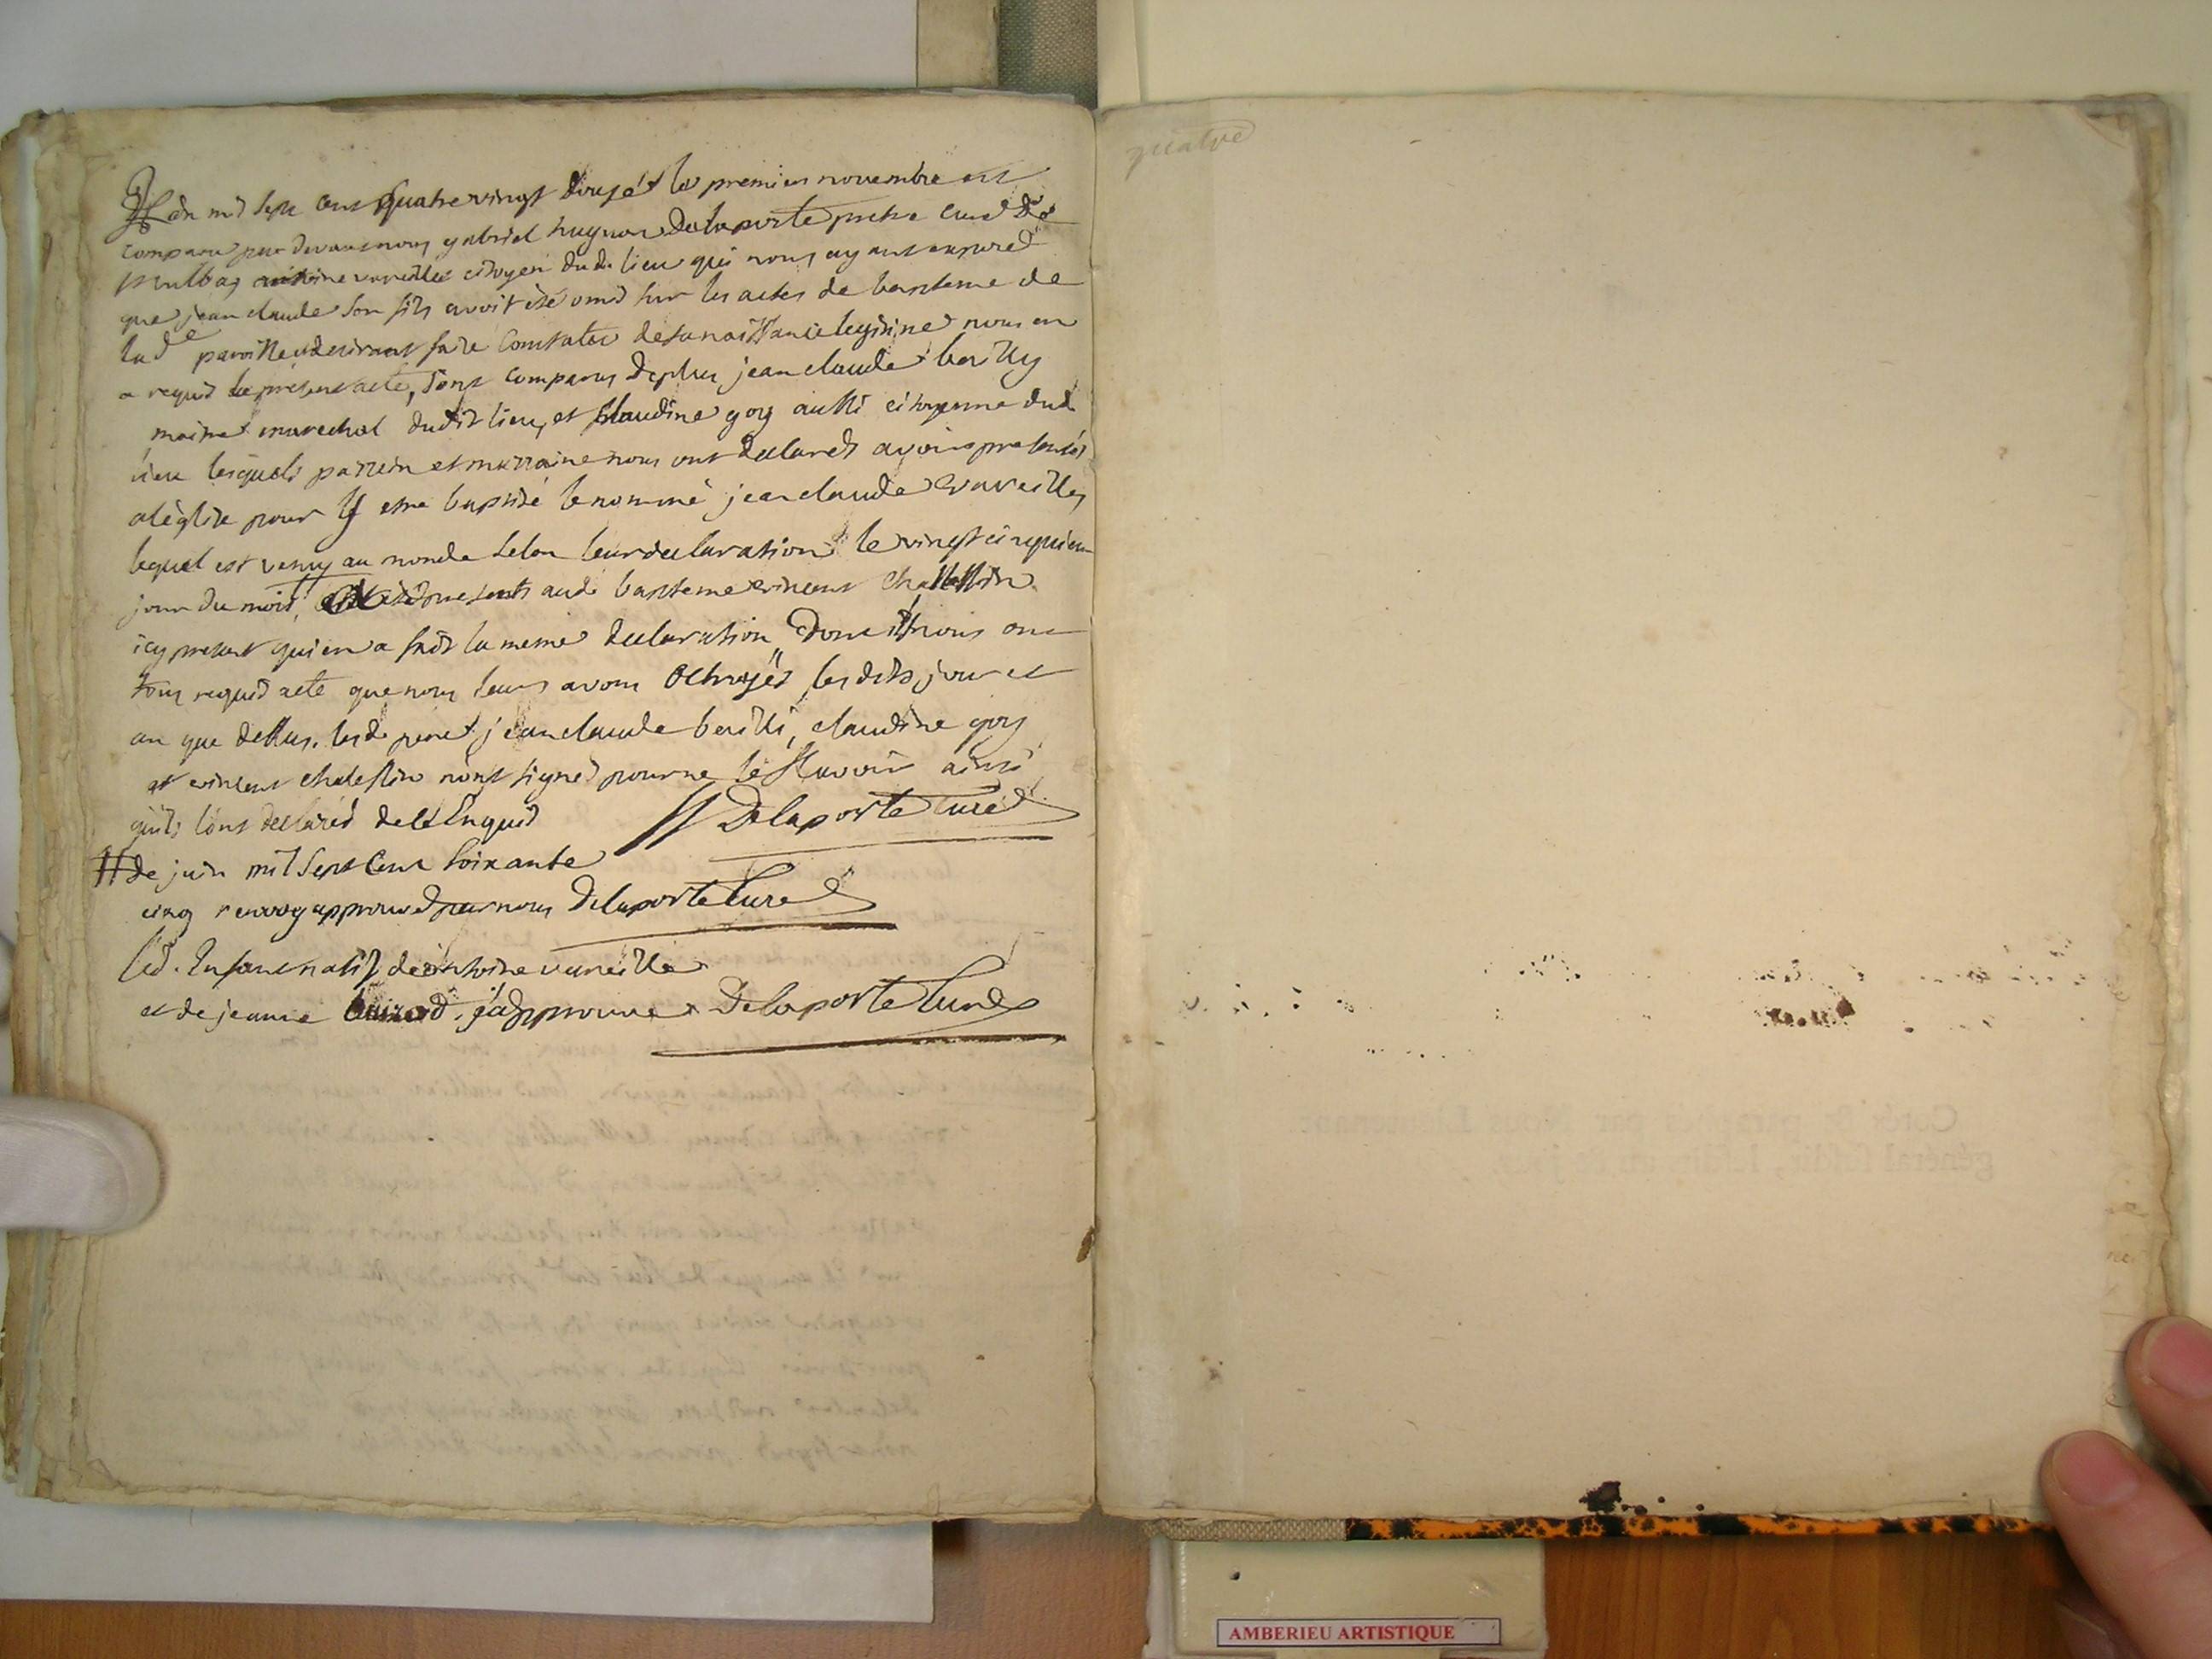 L'an mil sept cent quatre vingt douze et le premier novembre est
comparu par devant nous gabriel huguon Delaporte pretre curé de
antoine vareille citoyen dud. lieu qui nous ayant exposed
que jean claude son fils avoit été omis sur les actes de bapteme de
lad.e paroisse et desirant faire constater de sa naissance legitime nous en
a requis le présent acte, sont comparus de plus jean claude bailly
maitre marechal dudit lieu, et Claudine goy aussi citoyenne dud.
lieu lesquels parrein et marraine nous ont declarés avoir presentés
aléglise pour y etre baptisé le nommé jean claude vareilles
lequel est venu au monde selon leur declaration le vingt cinquieme
jour du mois, presents aud. bapteme vincent
icy present qui en a fait la meme declaration, dont ils nous ont
tous requis acte que nous leurs avons octroyés les dits jour et
an que dessus. led. pere et jean claude bailli, claudine goy
et vincent chatestin n'ont signés pour ne le sçavoir ainsi
quils l'ont declarés de ce enquis // Delaporte Curé
// de juin mil sept cent soixante
cinq renvoy approuvé par nous Delaporte Curé
led. Enfant natif de antoine vareille
et de jeanne j'approuve Delaporte Curé
quatre
AMBERIEU ARTISTIQUE